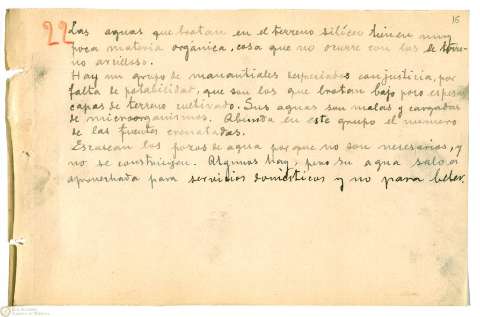 16
22
Las aguas que brotan en el terreno silíceo tienen muy
poca materia orgánica, cosa que no ocurre con las de terre-
no arcilloso.
Hay un grupo de manantiales despreciados con justicia, por
falta de potabilidad, que son los que brotan bajo poco espesas
capas de terreno cultivado. Sus aguas son malas y cargadas
de microorganismos. Abunda en este grupo el número
de las fuentes
Escasean los pozos de agua por que no son necesarios, y
no se construyen. Algunos hay; pero su agua solo es
aprovechada para servicios domésticos y no para beber.